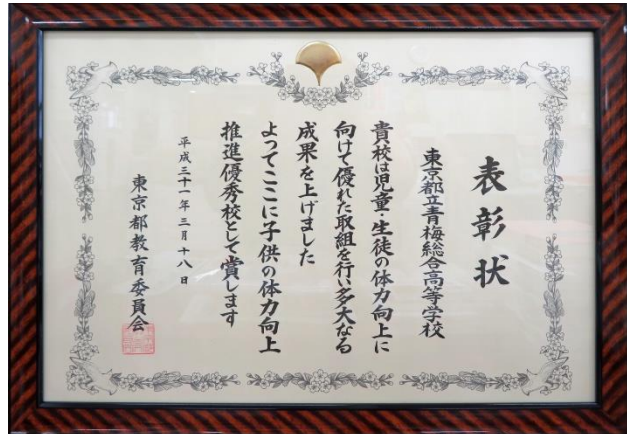 表彰状
東京都立青梅総合高等学校
貴校は児童・生徒の体力向上に
向けて優れた取組を行い多大なる
成果を上げました
よってここに子供の体力向上
推進優秀校として賞します
平成三十一年三月十八日
東京都教育委員会